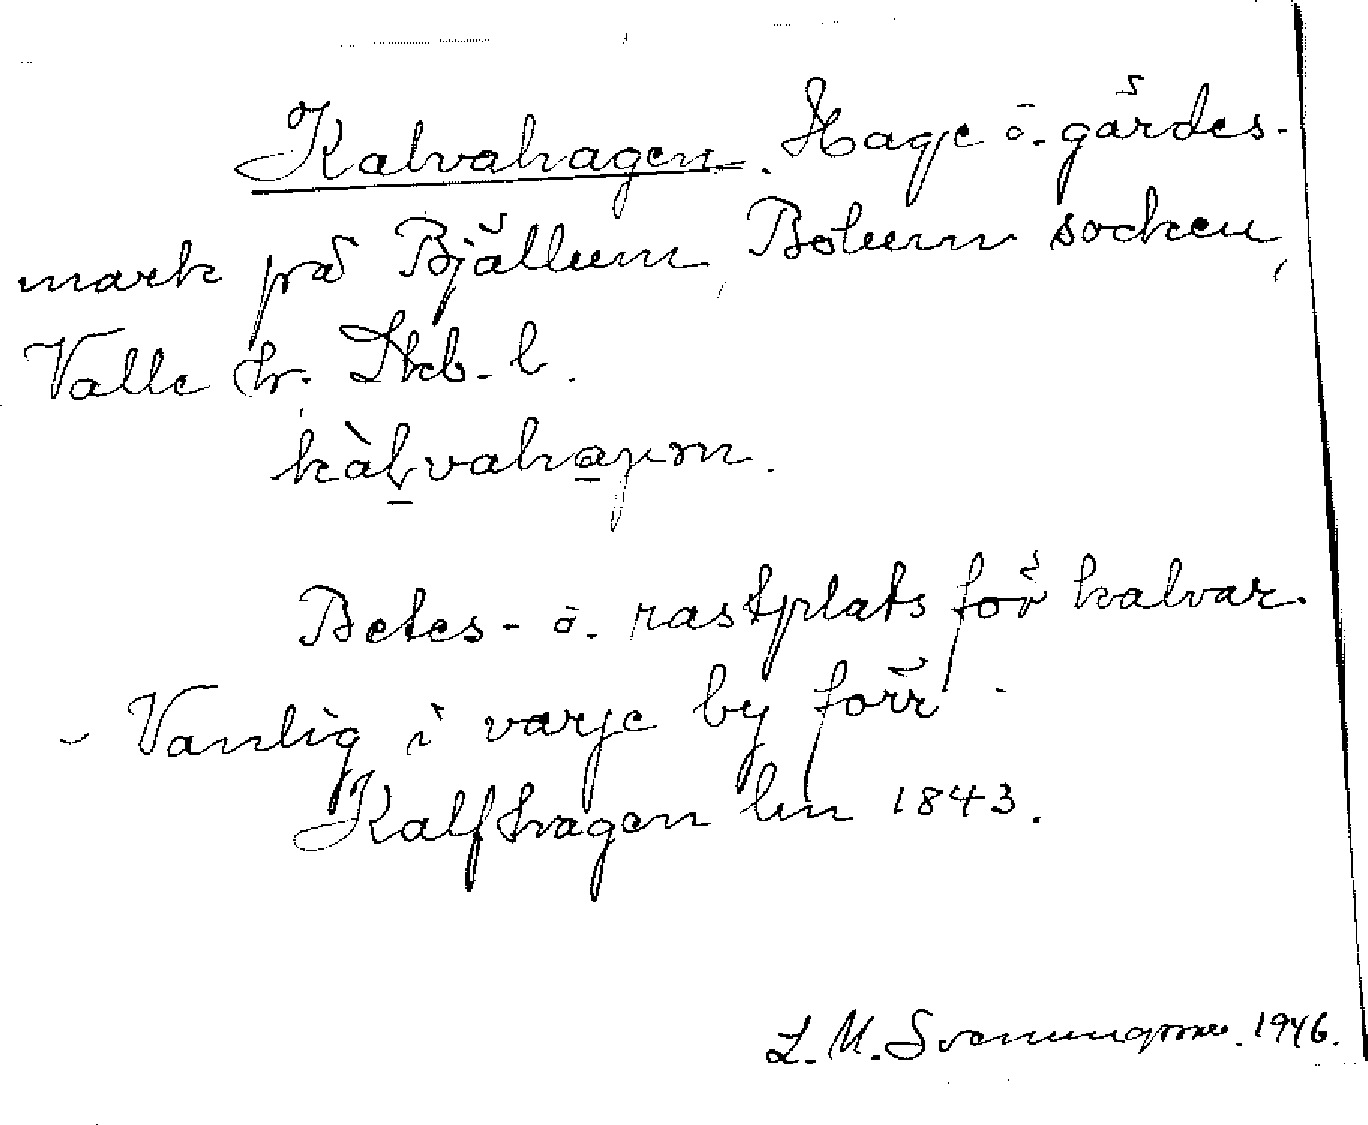 Kalvahagen. Hage o. gärdes-
mark på Bjällum, Bolum socken,
Valle hr. Skb. l.
kàlvahagən.
Betes- o. rastplats för kalvar.
- Vanlig i varje by förr.
Kalfhagen lm 1843.
L. M. Svenungsson. 1946.